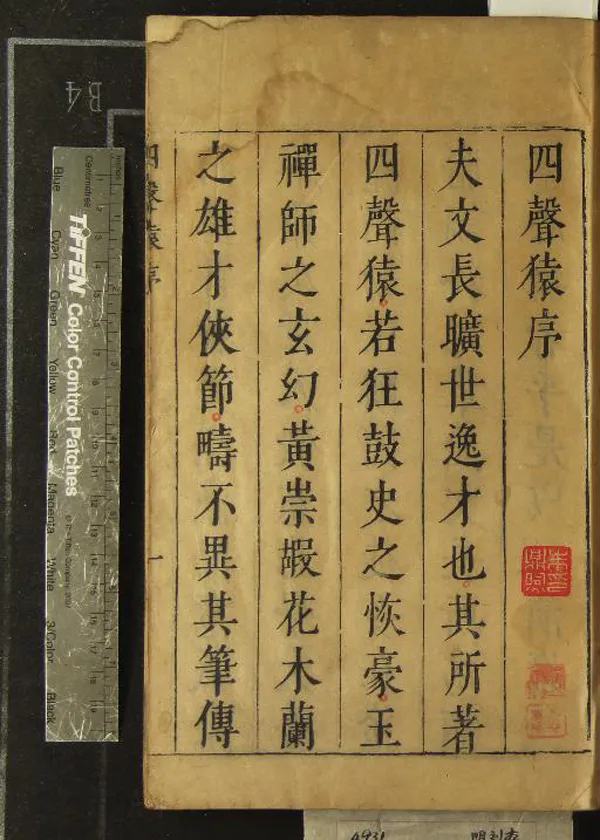 四聲猿序
夫文長曠世逸才也其所著
四聲猿若狂鼓史之恢豪玉
禪師之玄幻黃崇嘏花木蘭
之雄才俠節疇不異其筆傳
四聲猿序
一
B4
TIFFEN Color Control Patches
© The Tiffen Company, 2007
Centimetres
Inches
Blue
Cyan
Green
Yellow
Red
Magenta
White
3/Color
Black
4931
明刻本